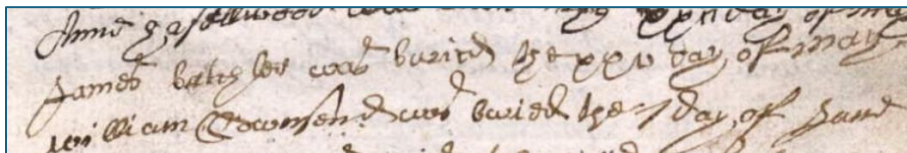 Anne Haselwood was the xxii day of may
James batcheler was buried the xxv day of may
William Townsend was buried the 1 day of June